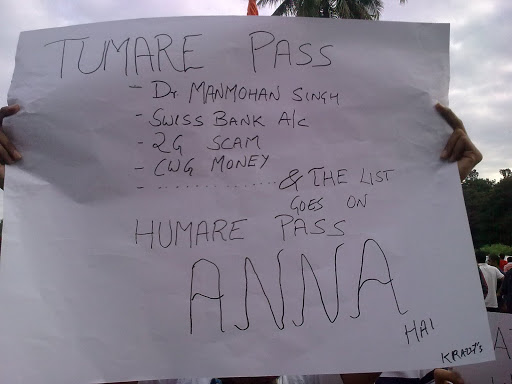 TUMARE PASS
- Dr MANMOHAN SINGH
- SWISS BANK A/c
- 2G SCAM
- CWG MONEY
- ............. & THE LIST
GOES ON
HUMARE PASS
ANNA
HAI